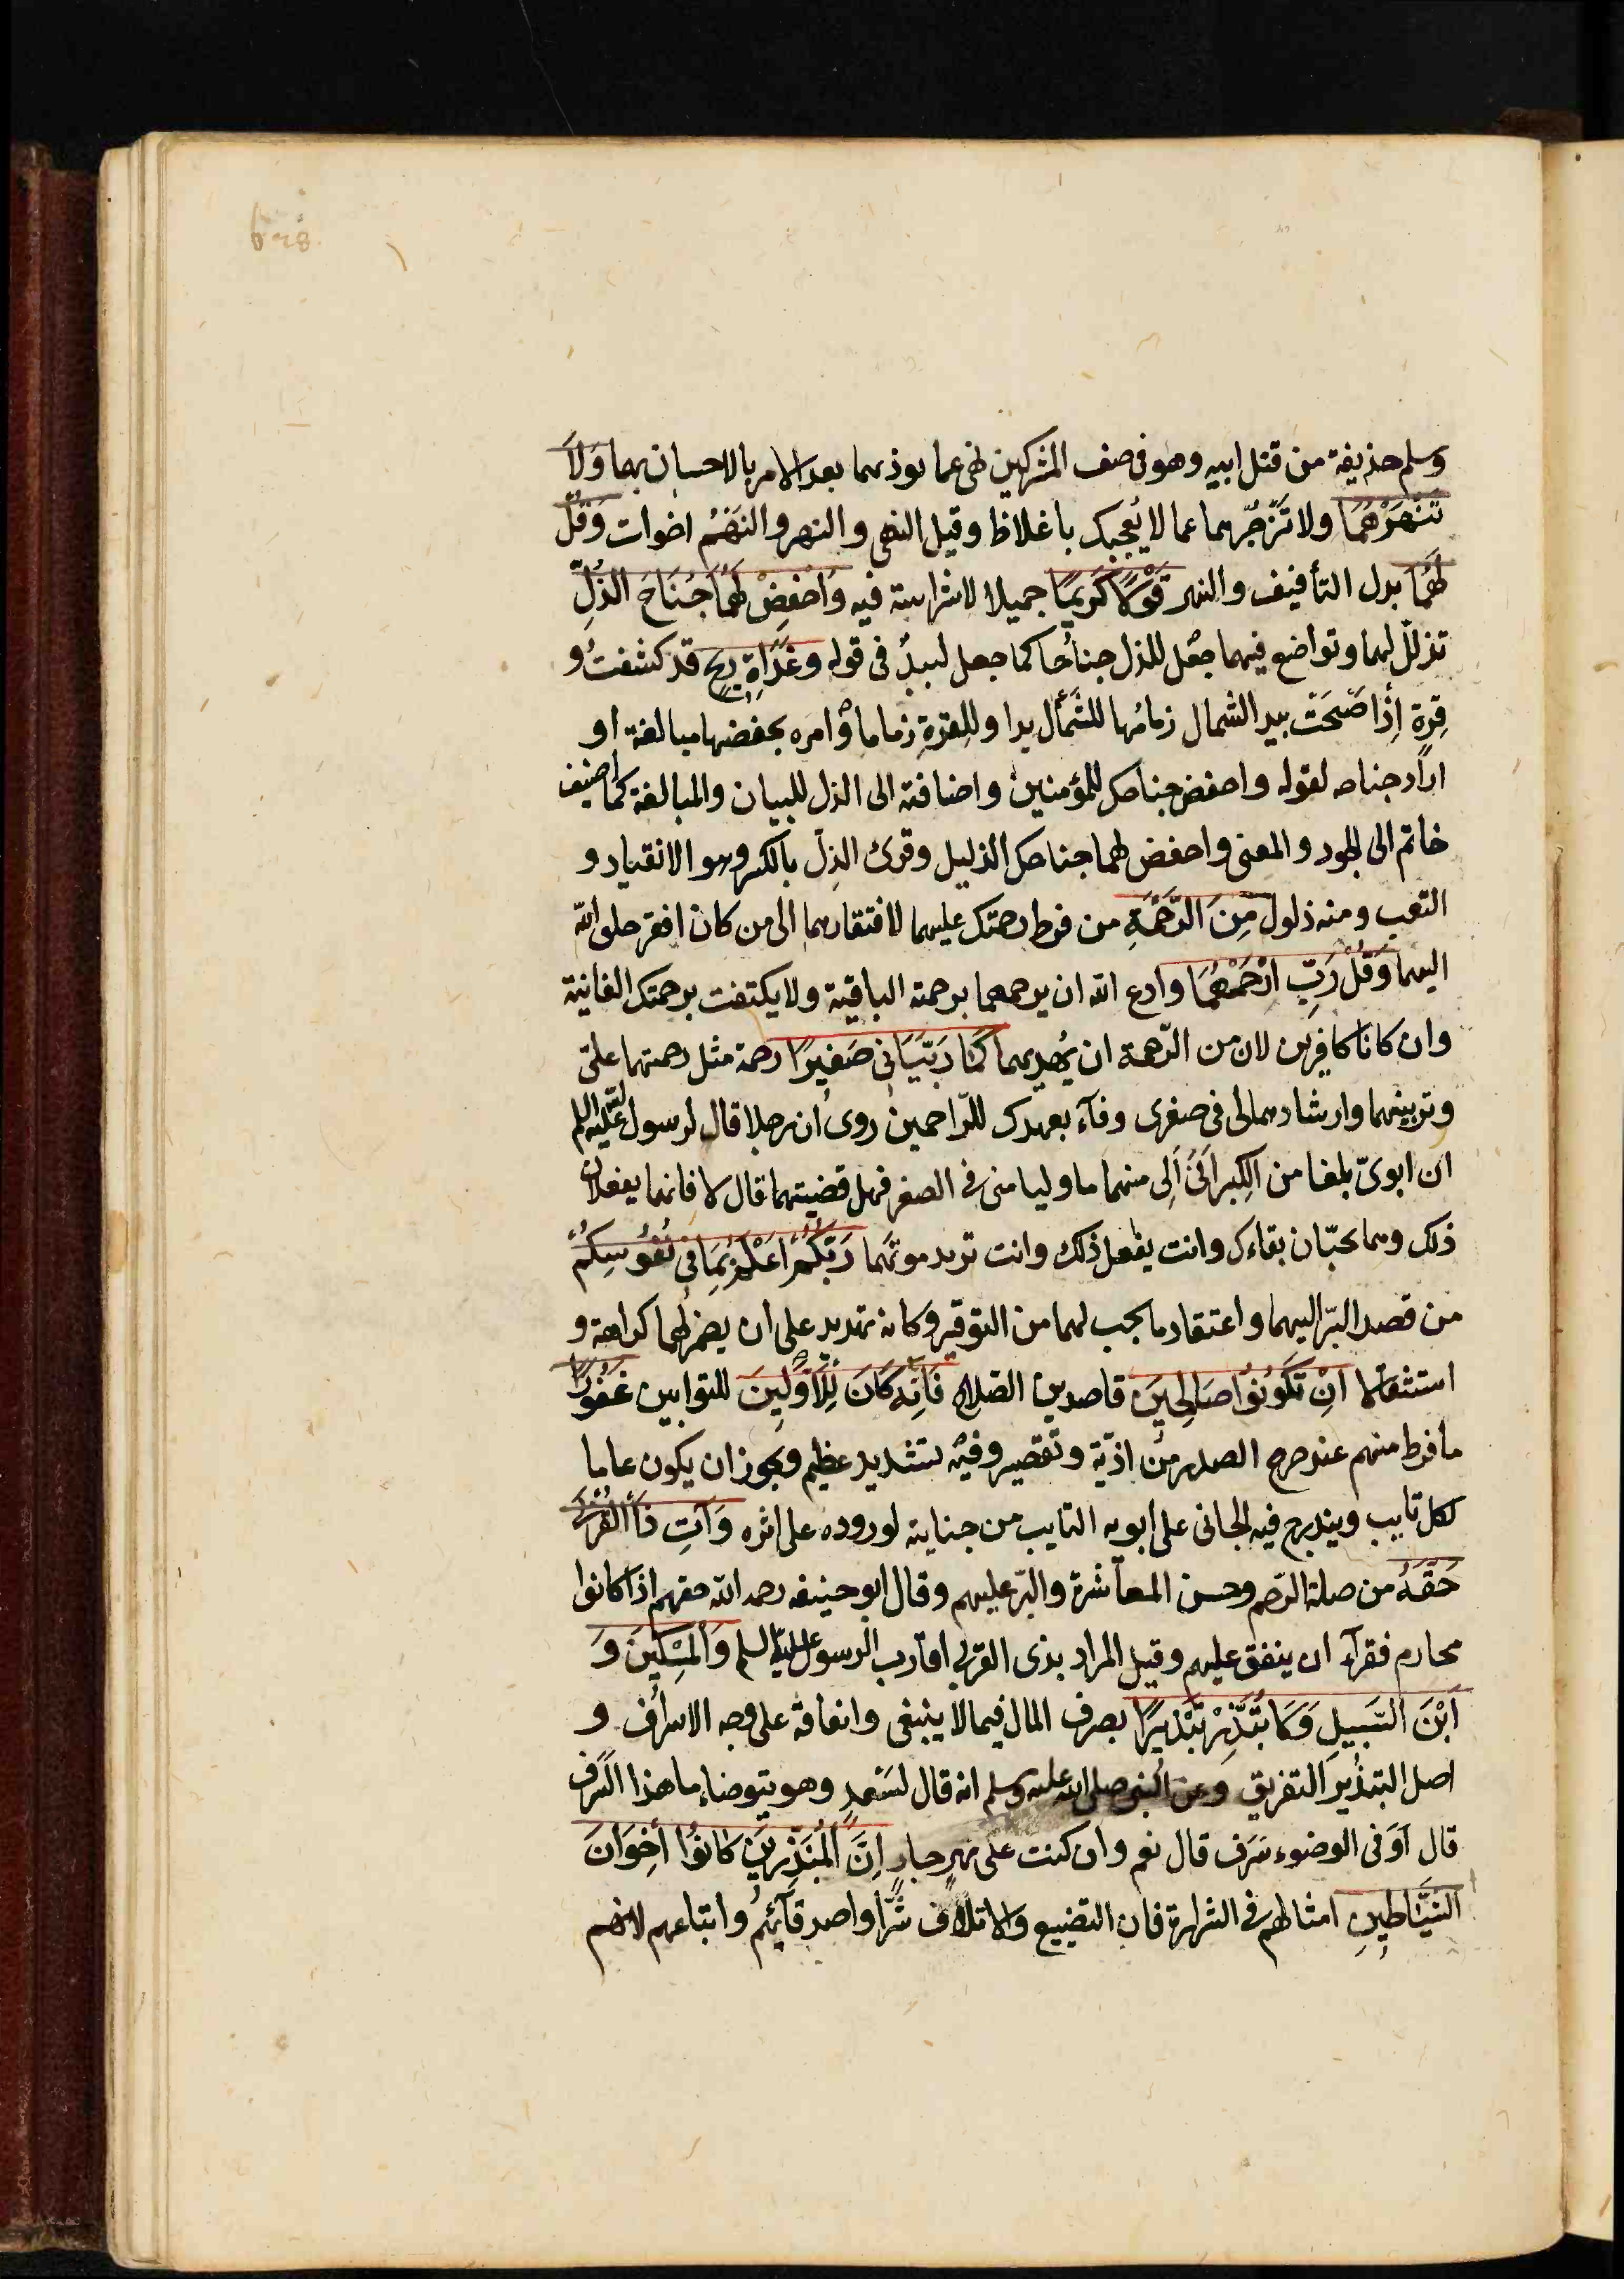 وسلم حذيفة من قتل ابيه وهو فى صف المشركين نهى عما يوذيهما بعد الامر بالاحسان بهما وَلَا
تَنْهَرْهُمَا ولا تَزْجُرْهما عما لا يُعجبك باغلاظ وقيل النهى والنهر والنَهْمُ اخوات وَقُلْ
لَهُمَا بدل التأفيف والنهر قَوْلًا كَرِيمًا جميلا لا شراسة فيه وَاخْفِضْ لَهُمَا جَنَاحَ الذُلِّ
تذلل لهما وتواضع فيهما جعل للذل جناحًا كما جعل لبيدٌ فى قوله وغَدَاةِ ريحٍ قد كشفتُ و
قِرةٍ اِذْا صبَحَت بيد الشمال زمامُها للشمأل يدا وللقرةِ زماما وٌامره بخفضهما مبالغة او
اراد جناحه لقوله واخفض جناحك للمؤمنين واضافته الى الذل للبيان والمبالغة كما اضيف
خاتم الى الجود والمعنى واخفض لهما جناحك الذليل وقرئ الذِلّ بالكسر وهو الانقياد و
التعب ومنه ذلول مِنَ الرَّحْمَةِ من فرط رحمتك عليهما لافتقارهما الى من كان افقر خلق الله
اليهما وَقُلْ رَبِّ ارْحَمْهُمَا وادع الله ان يرحمهما برحمته الباقية ولا يكتفت برحمتك الفانية
وان كانا كافرين لان من الرّحمة ان يُهديهما كَمَا رَبَّيَانِى صَغِيرًا رحمة مثل رحمتهما علىّ
وتربيتهما وارشادهما لى فى صغرى وفآء بعهدك للرّاحمين روى ان رجلا قال لرسول الله عليه السلم
ان ابوىّ بلغا من الكِبر اَنّى اَلِى منهما ما وليا منى فى الصغر فهل قضيتهما قال لا فانهما يفعلان
ذلك وهما يحبّان بقاءك وانت يفعل ذلك وانت تريد موتهما رَبُّكُمْ اَعْلَمُ بِمَا فِى نُفُوسِكُمْ
من قصد البرّ اليهما واعتقاد ما يجب لهما من التوقير وكانه تهديد على ان يضمر لهما كراهة و
استثقالا اِنْ تَكُونُوا صَالِحِينَ قاصدين الصّلاح فَاِنَّهُ كَانَ لِلْاَوَّلِينَ للتوابين غَفُورًا
ما فرط منهم عند حرج الصدر من اذيّة وتقصير وفيه تشديد عظيم ويجوز ان يكون عاما
لكل تايب ويندرج فيه الجانى على ابويه التايب من جنايته لوروده على اثره وَآتِ ذَا الْقُرْبَى
حَقَّهُ من صلة الرّحم وحسن المعاشرة والبرّ عليهم وقال ابو حنيفه رحمه الله حقهم اذا كانوا
محارم فقرآء ان ينفق عليهم وقيل المراد بذى القربى اقارب الرسول عليه السلم وَالْمِسْكِينَ وَ
اَبْنَ السَّبِيلِ وَلَا تُبَذِّرْ تَبْذِيرًا بصرف المال فيما لا ينبغى وانفاقة على وجه الاسراف و
اصل التبذير التفريق وعن النبى صلى الله عليه وسلم انه قال لسَعْدٍ وهو يتوضاء ما هذا السَّرف
قال اَوَ فى الوضوء سَرَف قال نعم وان كنت على نهرٍ جارٍ اِنَّ الْمُبَذِّرِينَ كَانُوا اِخْوَانَ
الشَيَّاطِينِ امثالهم فى الشرارة فان التضييع والاتلاف شرّ او اصدقآئهم واتباعهم لانهم